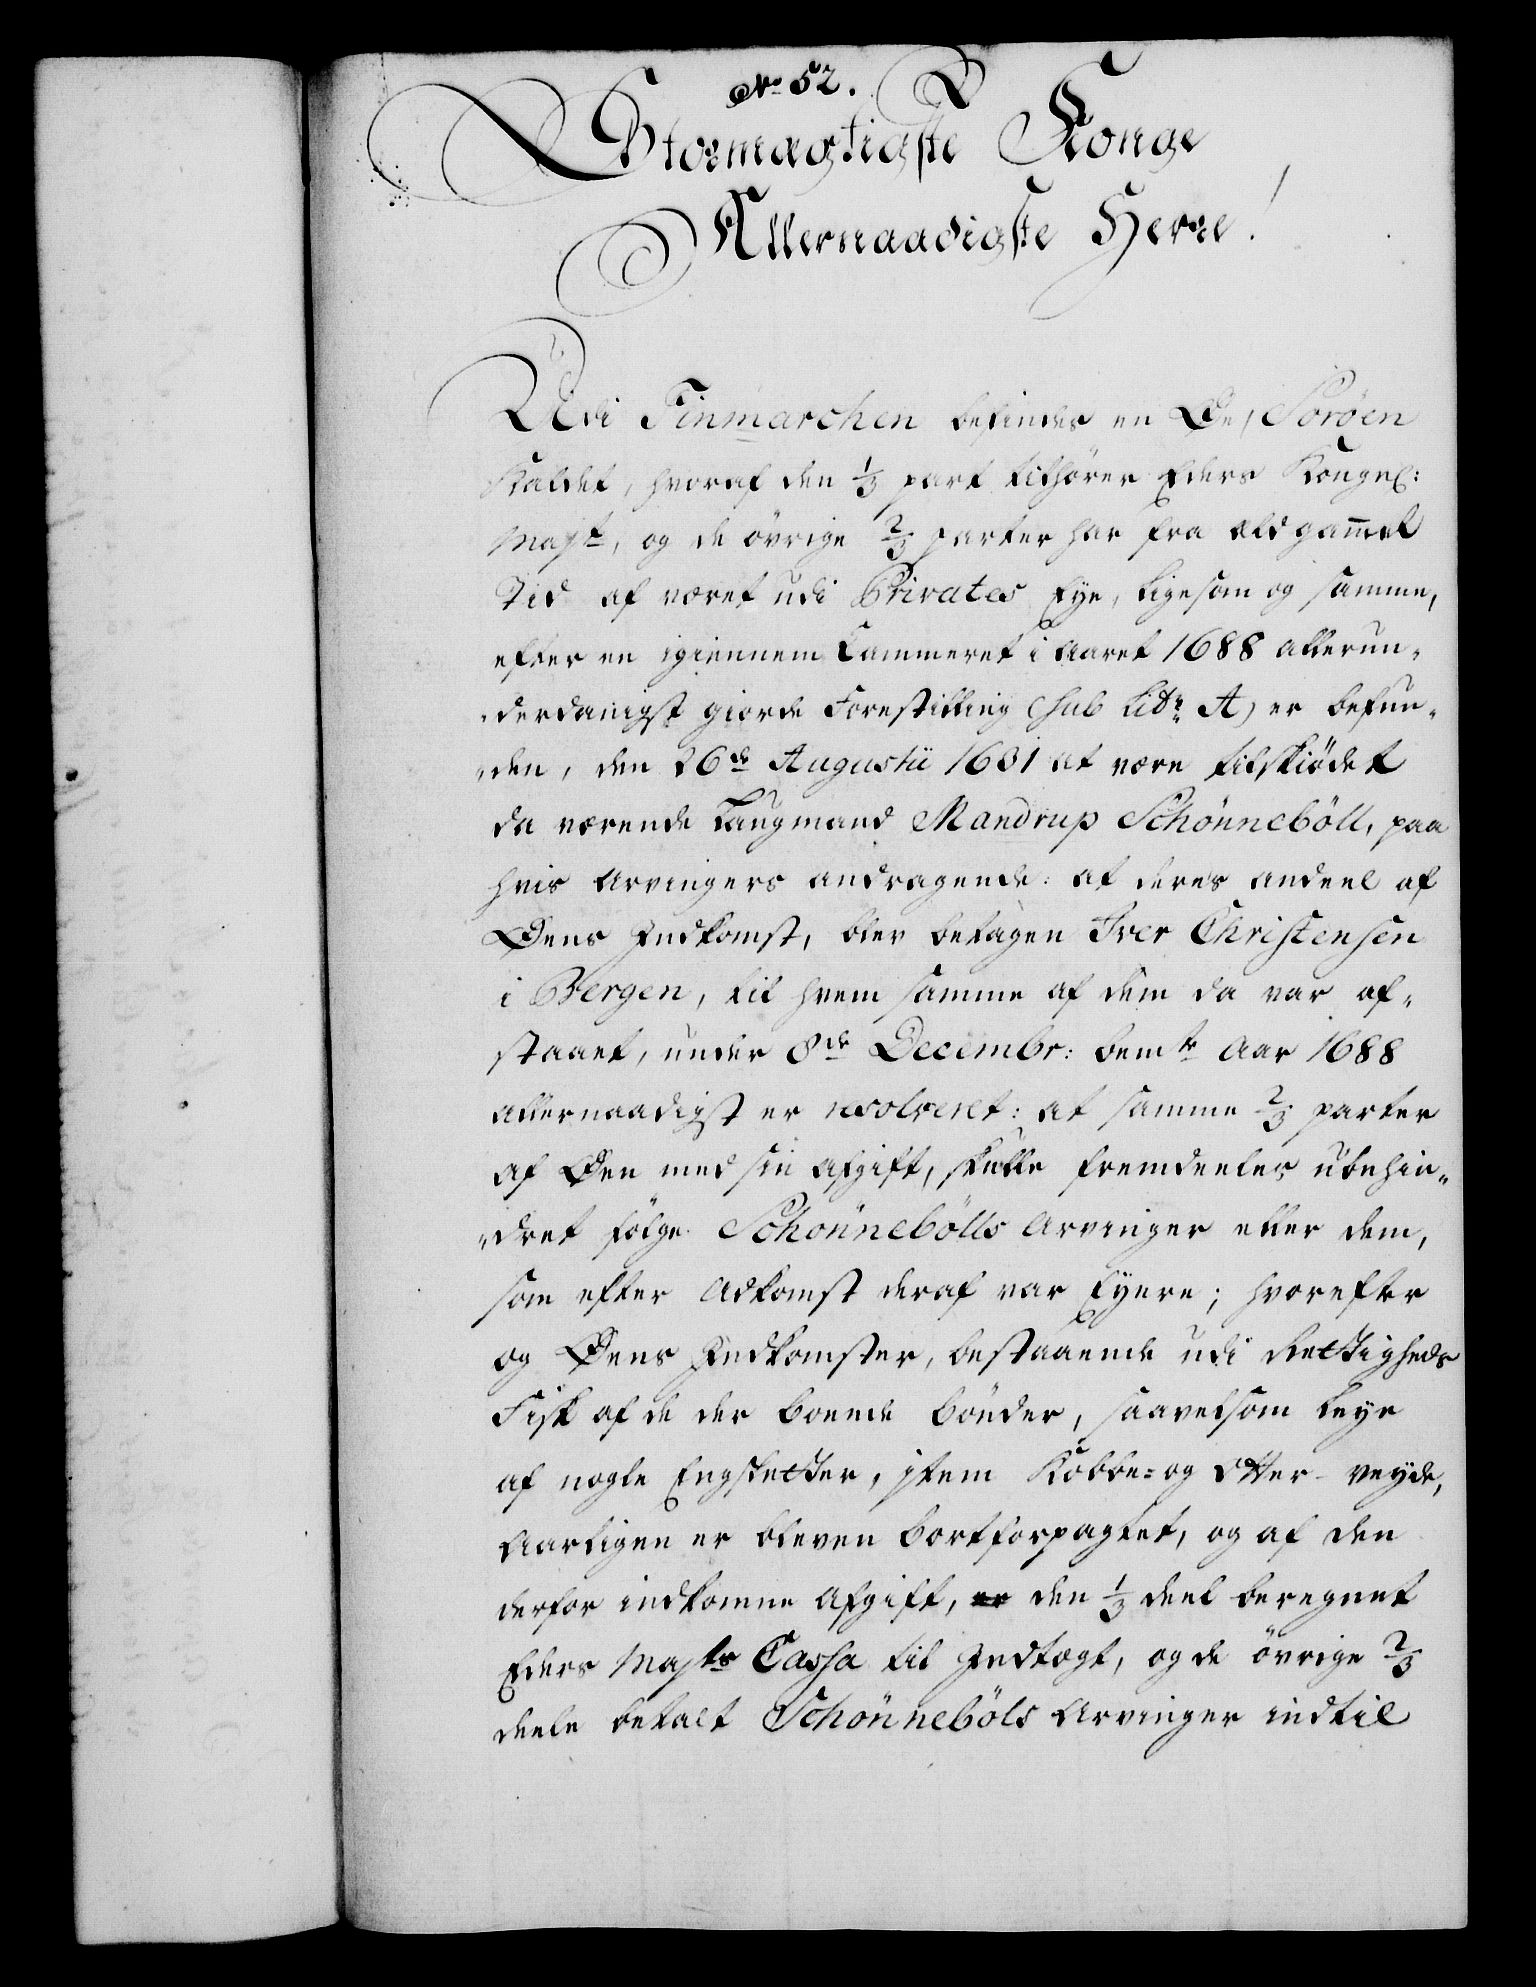 No 52.
Stormægtigste Konge
Allernaadigste Herre!
Udi Finmarchen befindes en Øe, Sorøen
Kaldet, hvoraf den 1/3 part tilhører Eders Kongel:
Mayt, og de övrige 2/3 parter har fra ældgam̄el
Tid af været udi Privates Eye, ligesom og samme,
efter en igiennem Cammeret i Aaret 1688 allerun„
„derdanigst giorde Forestilling (sub Litr: A) er befun„
„den, den 26de Augustii 1681 at være tilskiödet
da værende Laugmand Mandrup Schönneböll, paa
hvis Arvingers andragende: at deres andeel af
Øens Indkomst, blev betagen Iver Christensen
i Bergen, til hvem samme af dem da var af„
staaet, under 8de Decembr: bemte Aar 1688
allernaadigst er resolveret: at samme 2/3 parter
af Øen med sin afgift, skulle fremdeeles ubehin„
„dret fölge Schönnebölls Arvinger eller dem,
som efter Adkomst deraf var Eyere; hvorefter
og Øens Indkomster, bestaaende udi Rettigheds
Fisk af de der boende bönder, saavelsom Leye
af nogle Engsletter, item Kobbe= og Otter-veyde,
Aarligen er bleven bortforpagtet, og af den
derfor indkomne Afgift, er den 1/3 deel beregnet
Eders Mayts Cassa til Indtægt, og de övrige 2/3
deele betalt Schönnebôls Arvinger indtil